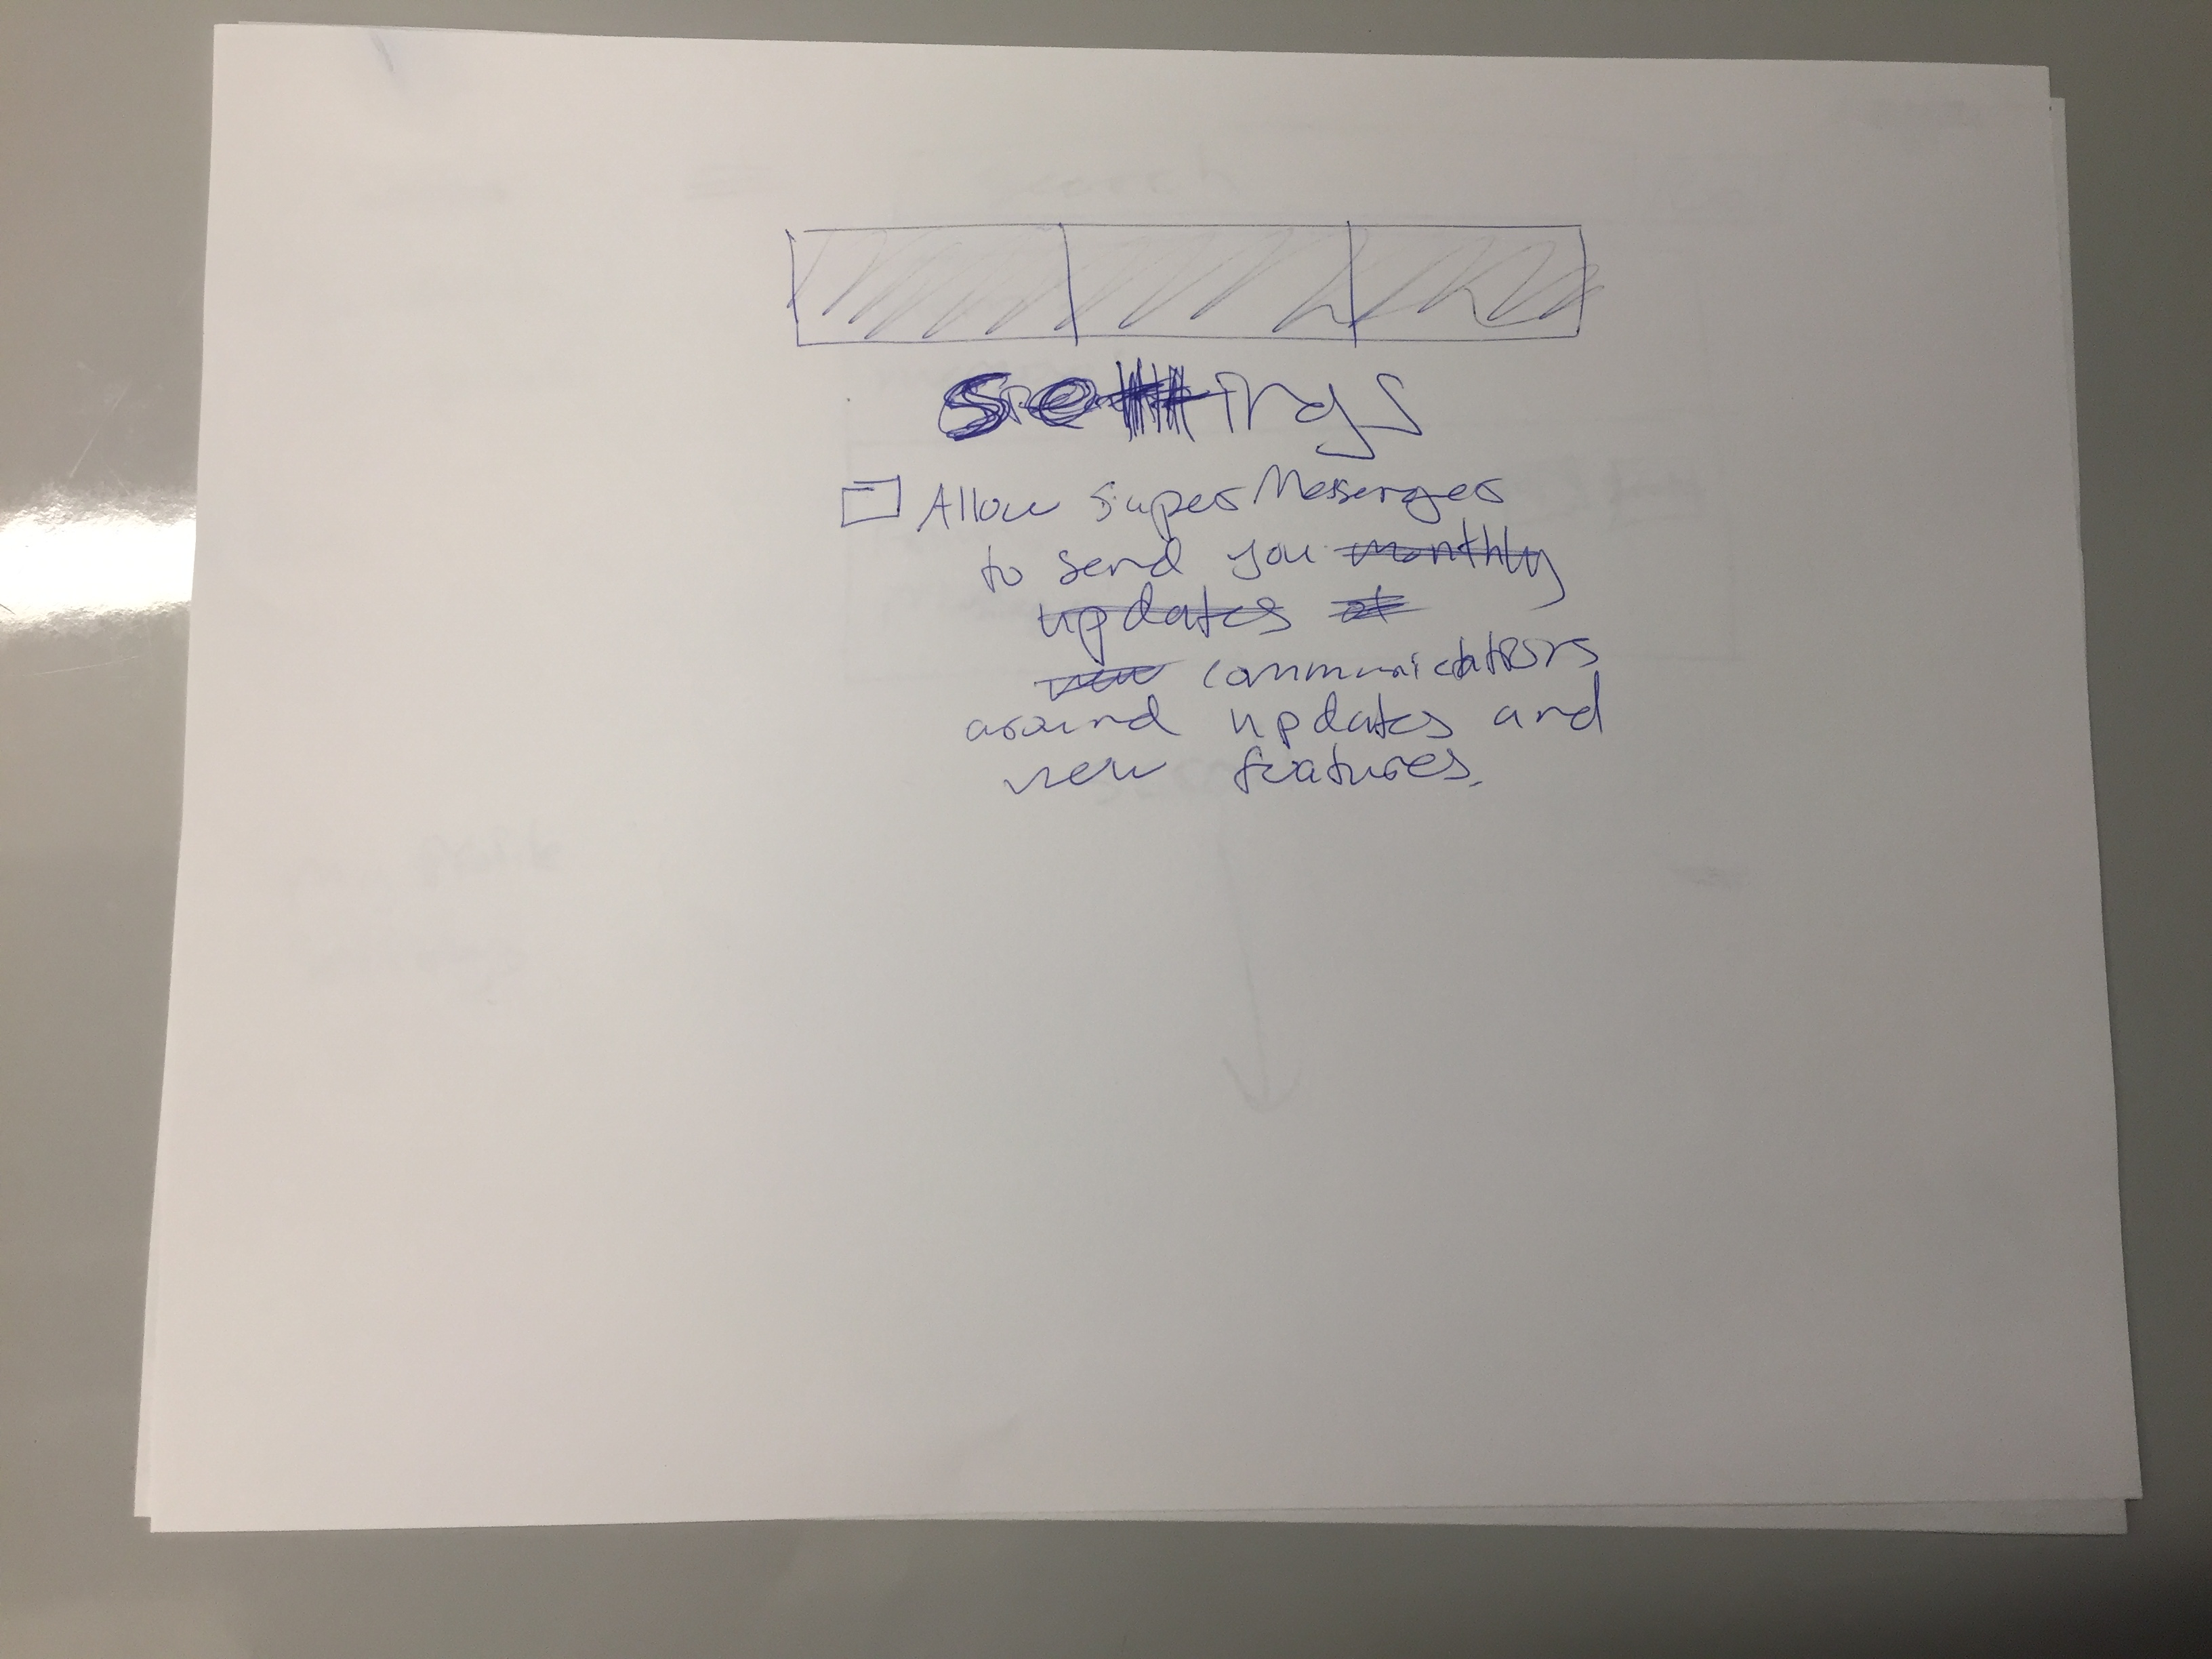 Allow SuperMessages
to send you monthly
updates at
communications
around updates and
new features.